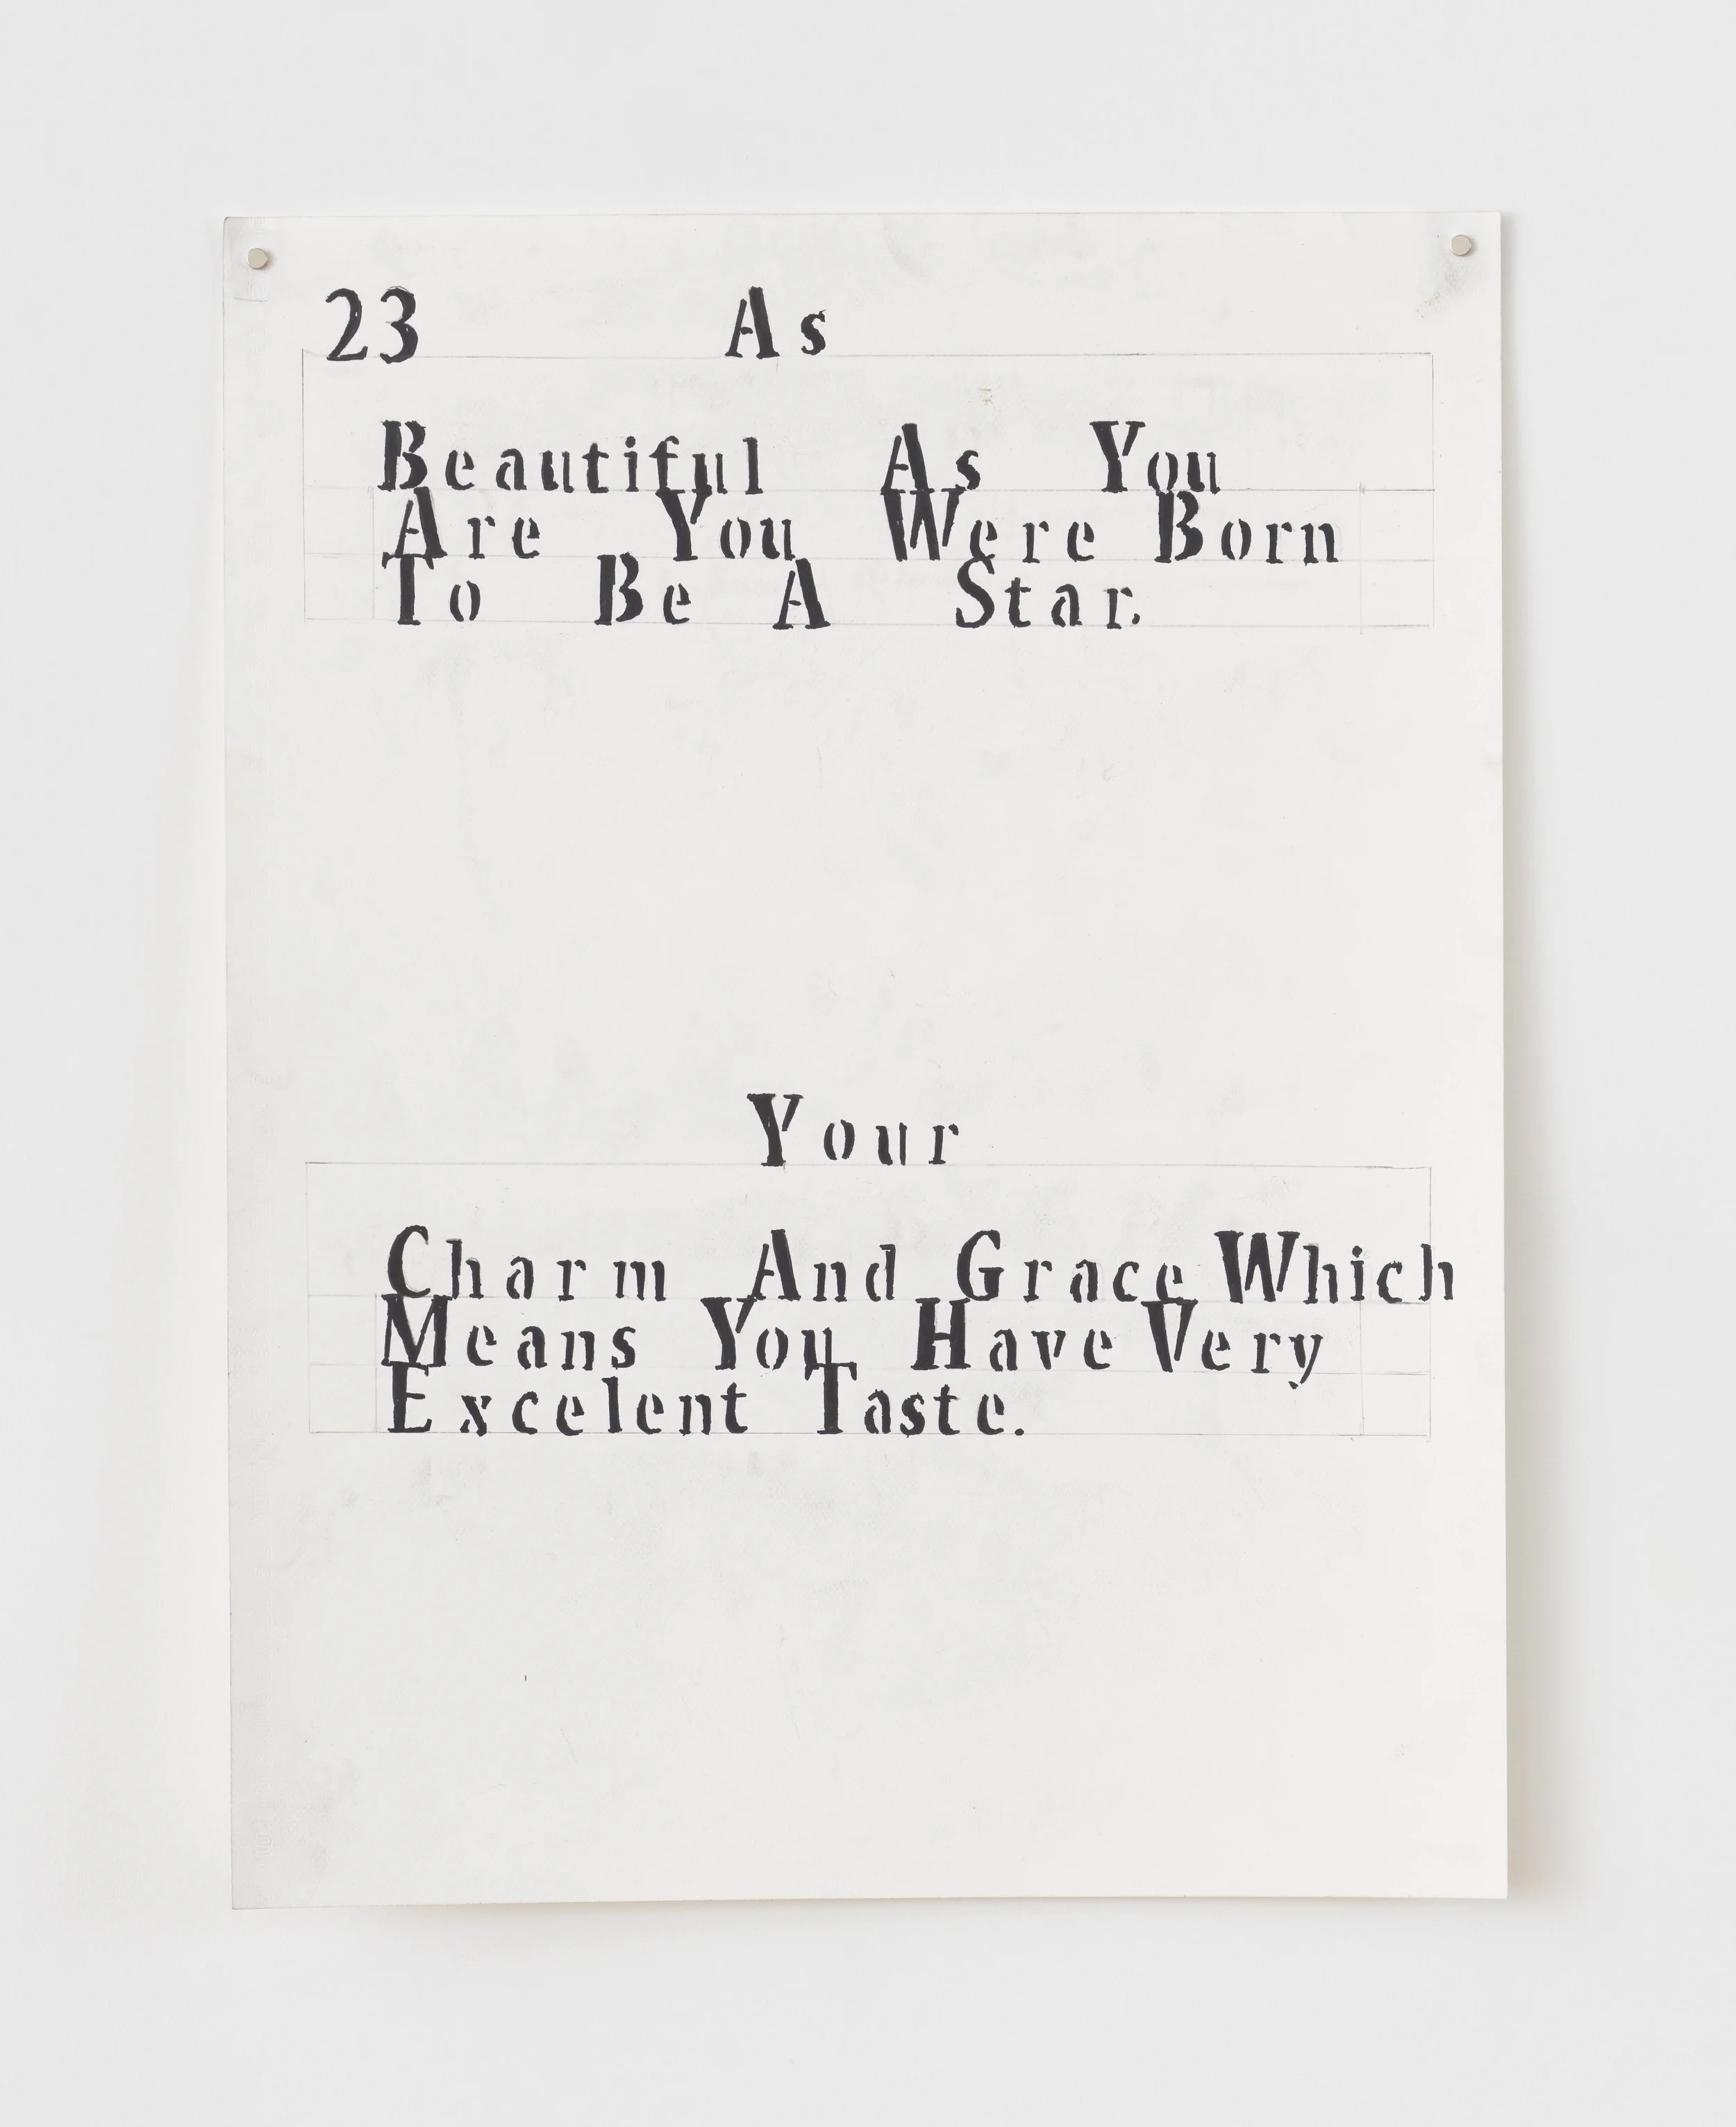 23 As
Beautiful As You
Are You Were Born
To Be A Star.
Your
Charm And Grace Which
Means You Have Very
Excelent Taste.